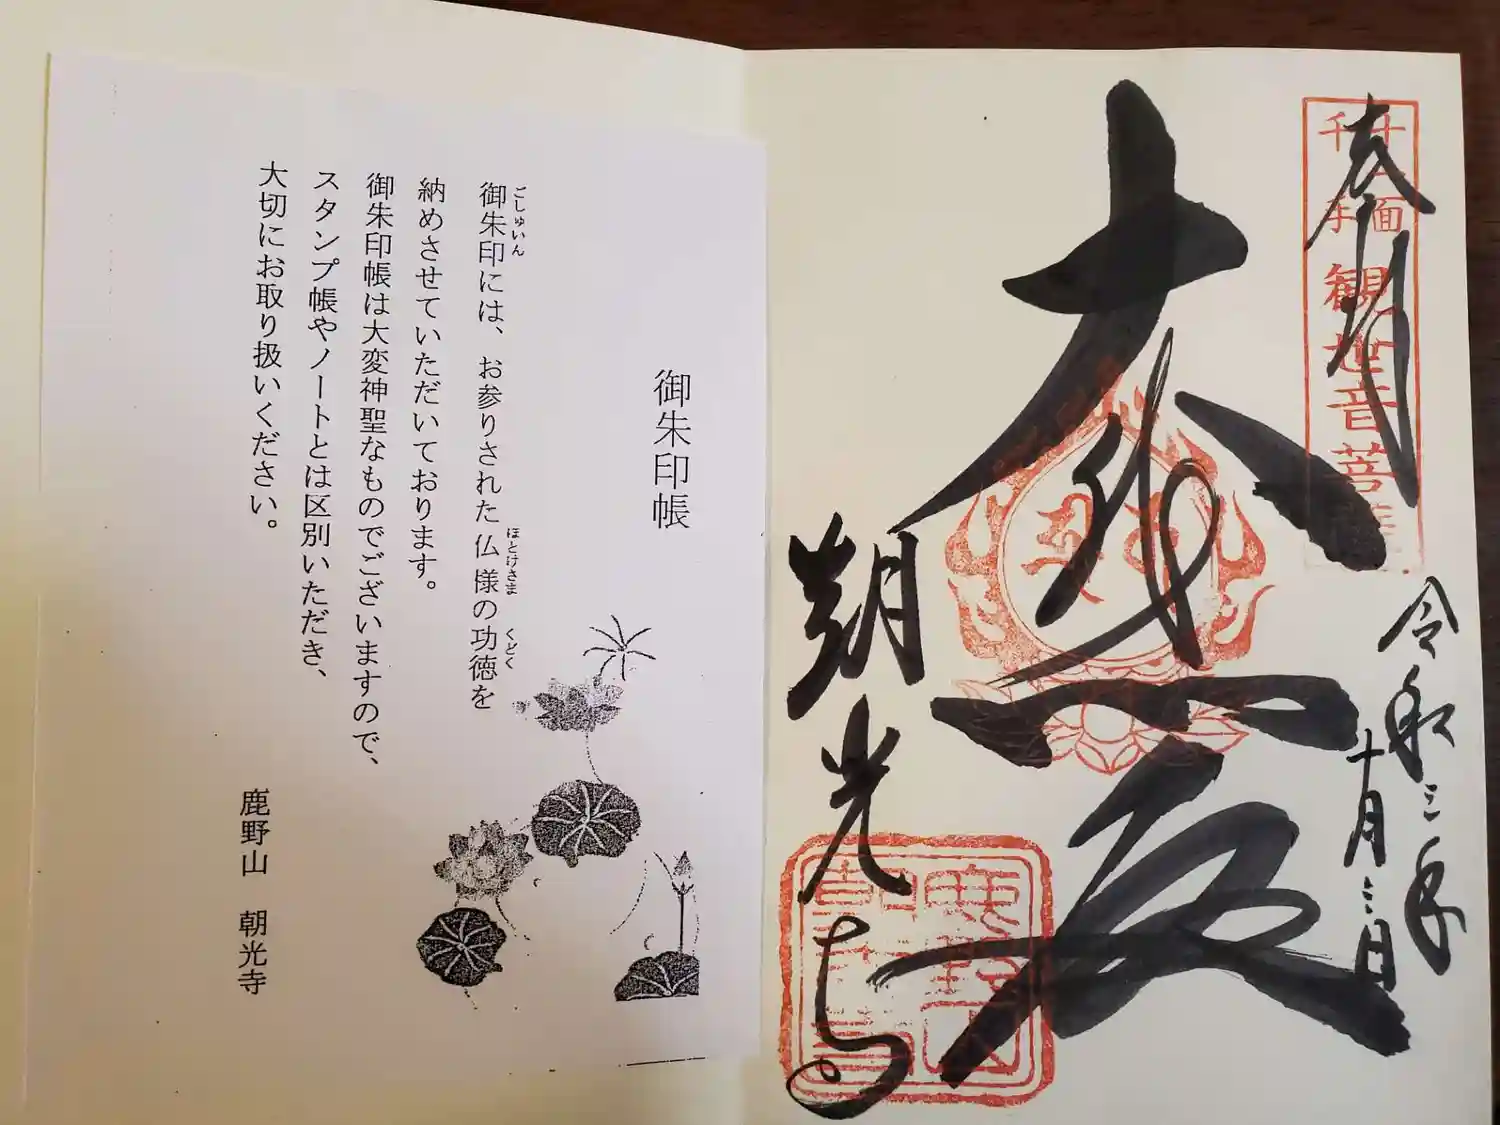 奉拝
十一面
千手
観世音菩薩
令和三年
十月三日
大悲殿
朝光寺
鹿野山
朝光寺
御朱印帳
ごしゅいん
御朱印には、お参りされた仏様の功徳を
ほとけさま
くどく
納めさせていただいております。
御朱印帳は大変神聖なものでございますので、
スタンプ帳やノートとは区別いただき、
大切にお取り扱いください。
鹿野山 朝光寺